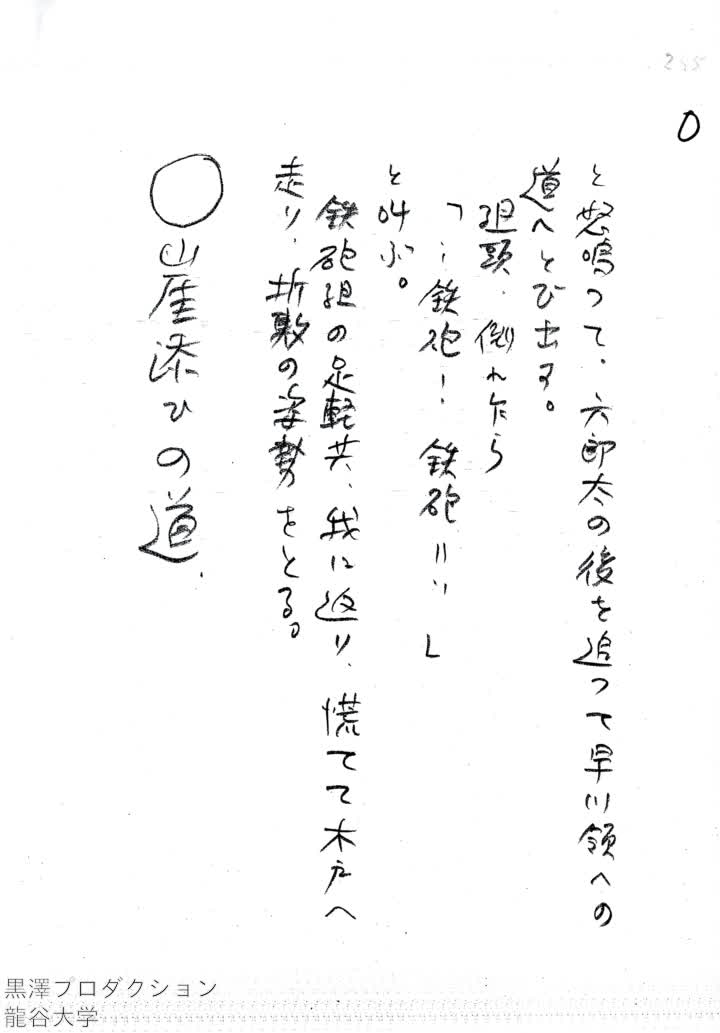 245
0
と怒鳴つて、六郎太の後を追つて早川領への
道へとび出す。
組頭、倒れたら
「…鉄砲！ 鉄砲!!…」
と叫ぶ。
鉄砲組の足軽共、我に返り、慌てて木戸へ
走り、折敷の姿勢をとる。
○山崖添ひの道、
黒澤プロダクション
龍谷大学